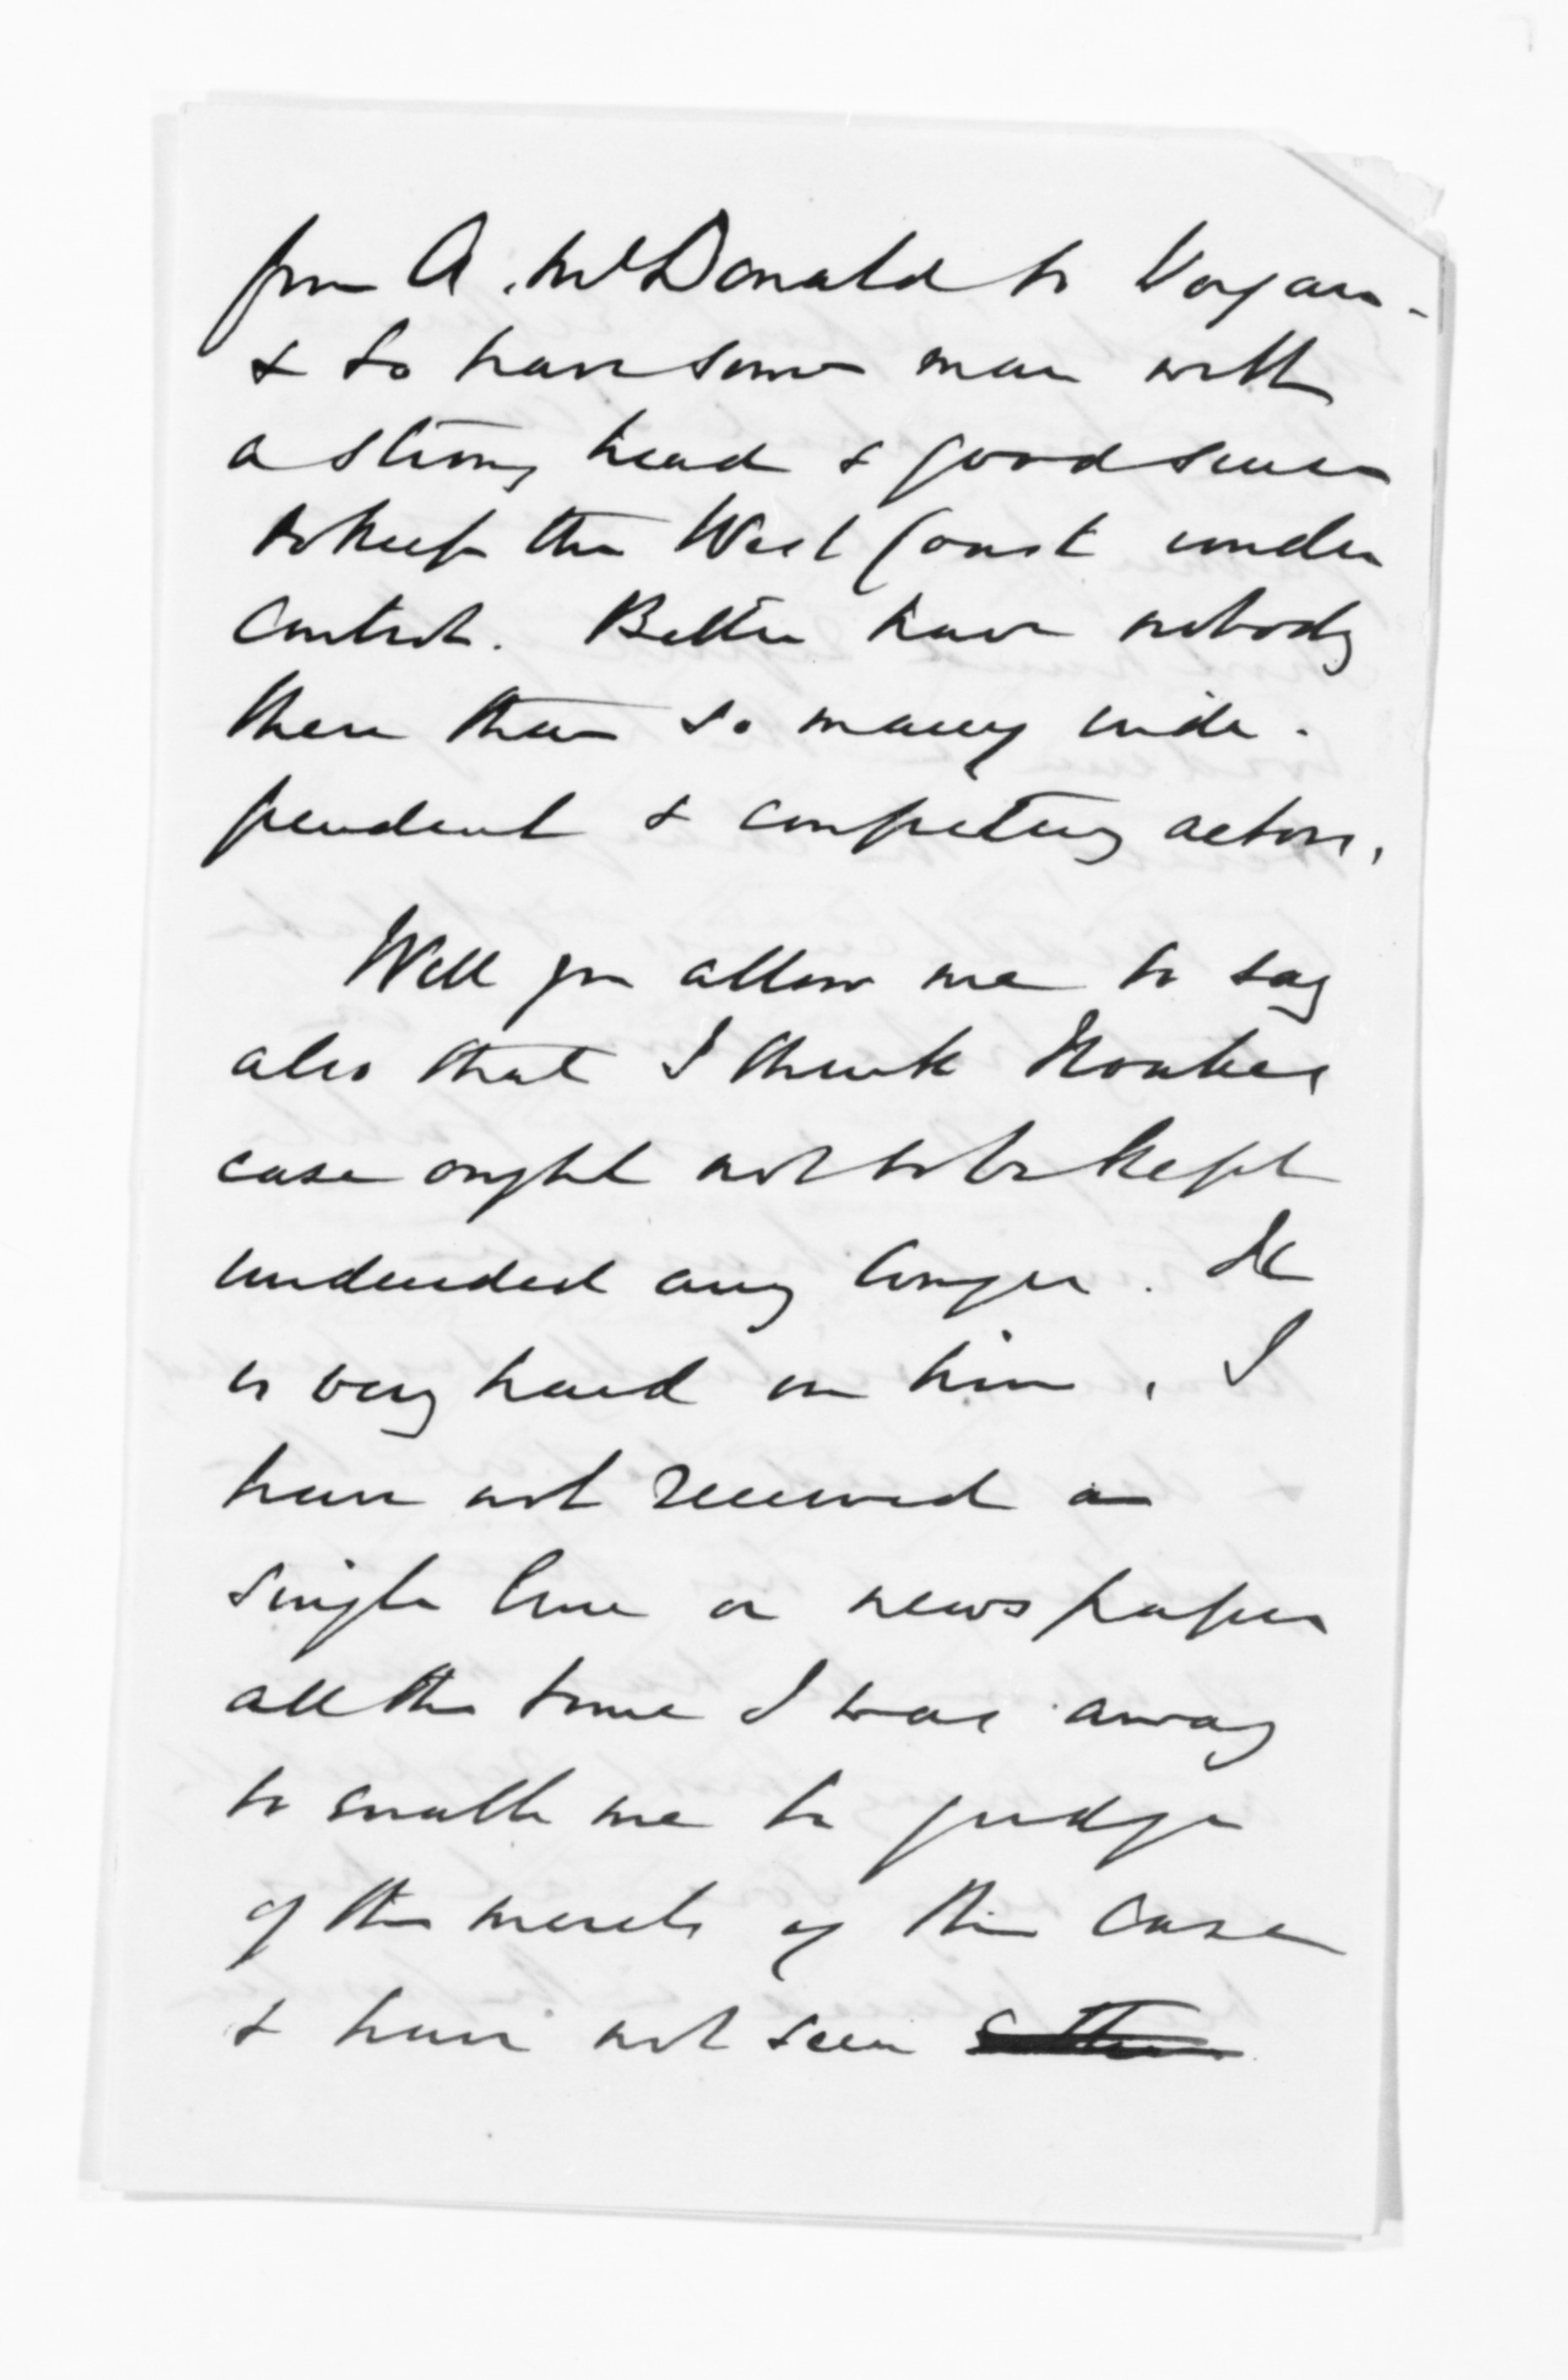 from A. McDonald to Wogan -
& to have some man with
a strong head & good sense
to keep the West Coast under
control. Better have nobody
there than so many inde-
pendent & competing actors.
Will you allow me to say
also that I think Noakes
case ought not to be kept
undecided any longer. It
is very hard on him. I
have not received a
single line or newspaper
all the time I was away
to enable me to judge
of the merits of this case
& have not seen